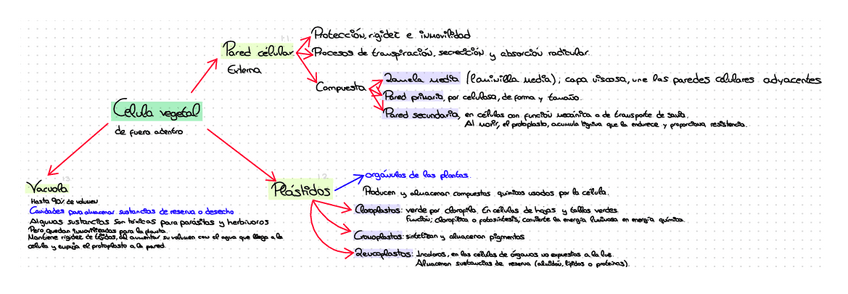 Protección, rigidez e inmovilidad
Pared celular
Externa
Procesos de transpiración, secreción y absorción radicular.
Compuesta
Lamela media (laminilla media); capa viscosa, une las paredes celulares adyacentes
Pared primaria, por celulosa, da forma y tamaño.
Pared secundaria, en células con función mecánica o de transporte de savia.
Al morir, el protoplasto, acumula lignina que la endurece y proporciona resistencia.
Célula vegetal
de fuera adentro
Vacuola
Hasta 90% de volumen
Cavidades para almacenar sustancias de reserva o desecho
Algunas sustancias son tóxicas para parásitos y herbívoros
Pero quedan inmovilizadas para la planta
Mantiene rigidez de tejidos, al aumentar su volumen con el agua que llega a la
célula y empuja el protoplasto a la pared.
Plástidos
orgánulos de las plantas.
Producen y almacenan compuestos químicos usados por la célula.
Cloroplastos: verde por clorofila. En células de hojas y tallos verdes
Función: clorofílica o fotosíntesis, convierte la energía luminosa en energía química.
Cromoplastos: sintetizan y almacenan pigmentos
Leucoplastos: Incoloros, en las células de órganos no expuestos a la luz.
Almacenan sustancias de reserva (almidón, lípidos o proteínas).